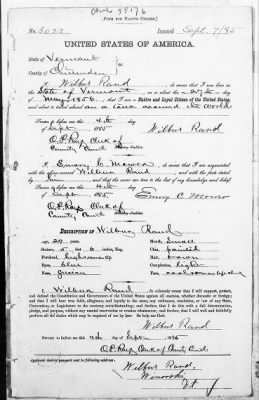 [FORM FOR NATIVE CITIZEN.]
No. 5022 Issued Sept. 7/85
UNITED STATES OF AMERICA.
State of Vermont
County of Chittenden
I, Wilbur Rand, do swear that I was born in
State of Vermont, on or about the 27th day
of May 1856; that I am a Native and Loyal Citizen of the United States,
and about to travel abroad on a tour around the World
Sworn to before me this 4th day
of Sept 1885 Wilbur Rand
Clerk of
County Court
I, Emory C. Mower, do swear that I am acquainted
with the above-named Wilbur Rand, and with the facts stated
by him, and that the same are true to the best of my knowledge and belief.
Sworn to before me this 4th day
of Sept 1885 Emory C Mower
Clerk of
County Court
DESCRIPTION OF Wilbur Rand
Age, 29 years Mouth, small
Stature, 5 feet 6 inches, Eng. Chin, pointed
Forehead, Hair, brown
Eyes, blue Complexion, light
Nose, Face,
I, Wilbur Rand, do solemnly swear that I will support, protect,
and defend the Constitution and Government of the United States against all enemies, whether domestic or foreign;
and that I will bear true faith, allegiance, and loyalty to the same, any ordinance, resolution or law of any State,
Convention, or Legislature to the contrary notwithstanding; and further, that I do this with a full determination,
pledge, and purpose, without any mental reservation or evasion whatsoever; and further, that I will well and faithfully
perform all the duties which may be required of me by law: So help me God.
Wilbur Rand
Sworn to before me this 4th day of Sept 1885
Clerk of County Court
Applicant desires passport sent to following address:
Wilbur Rand,
Winooski,
Vt